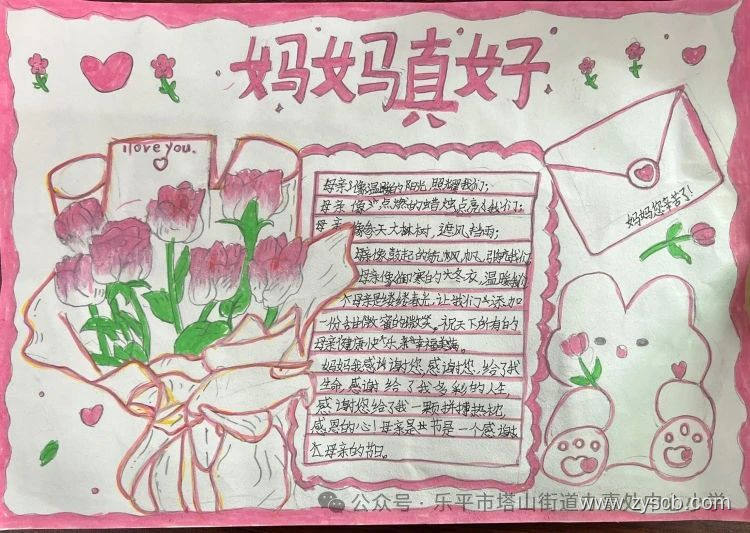 妈妈真好
I love you.
妈妈您辛苦了!
母亲像温暖的阳光,照耀我们;
母亲像点燃的蜡烛,点亮我们;
母亲像参天大树,遮风挡雨;
像鼓起的帆,引航我们
母亲像御寒的大冬衣,温暖我们
母亲 春光,让我们 添加
一份甜蜜的微笑。祝天下所有的
母亲健康快乐 幸福美满。
妈妈我感谢您,感谢您,给了我
生命,感谢 给了我多彩的人生,
感谢您给了我一颗拼搏
感恩的心!母亲 节是一个感谢
母亲的节日。
公众号·乐平市塔山街道办事处 小学
www.zyscb.com